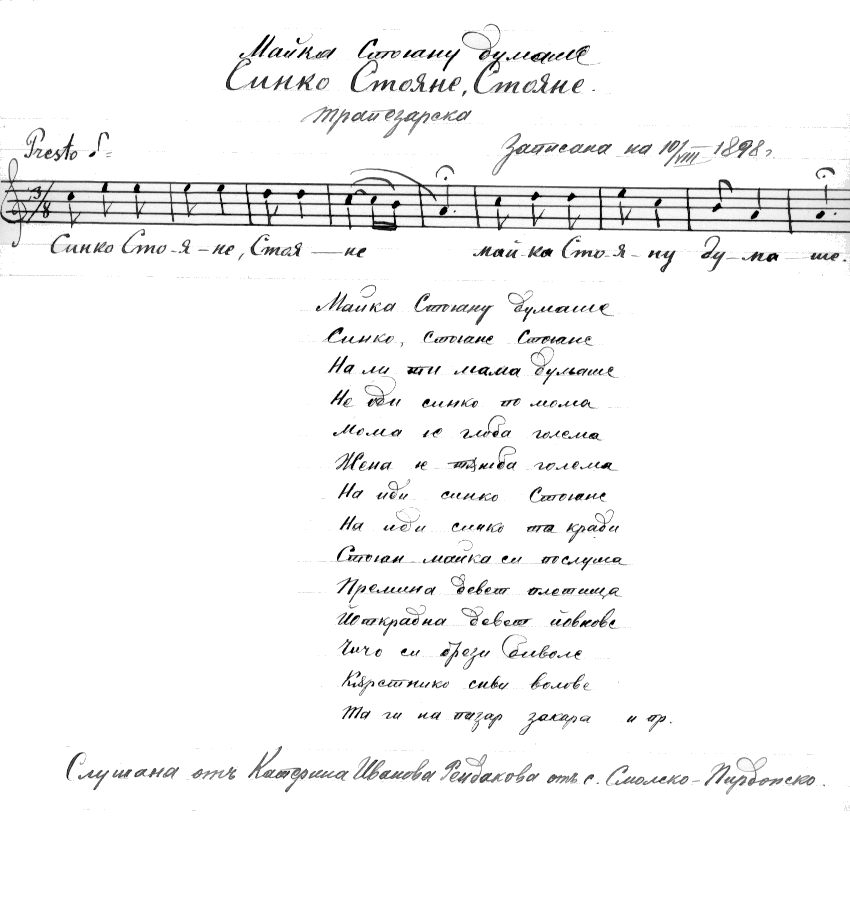 Майка Стояну думаше
Синко Стояне, Стояне.
трапезарска
Presto
Записана на 10/VIII 1898 г.
3/8
Синко Сто-я-не, Стоя-не май-ка Сто-я-ну ду-ма ше.
Майка Стояну думаше
Синко, Стояне Стояне
На ли ти мама думаше
Не иди синко по мома
Мома ю глоба голема
Жена ю голема
На иди синко Стояне
На иди синко та кради
Стоян майка си послуша
Премина девет плетища
Йоткрадна девет йовнове
Чичо си брези биволе
Кръстнико сиви волове
Та ги на пазар закара и пр.
Слушана отъ Катерина Иванова отъ с. Смолско-Пирдопско.